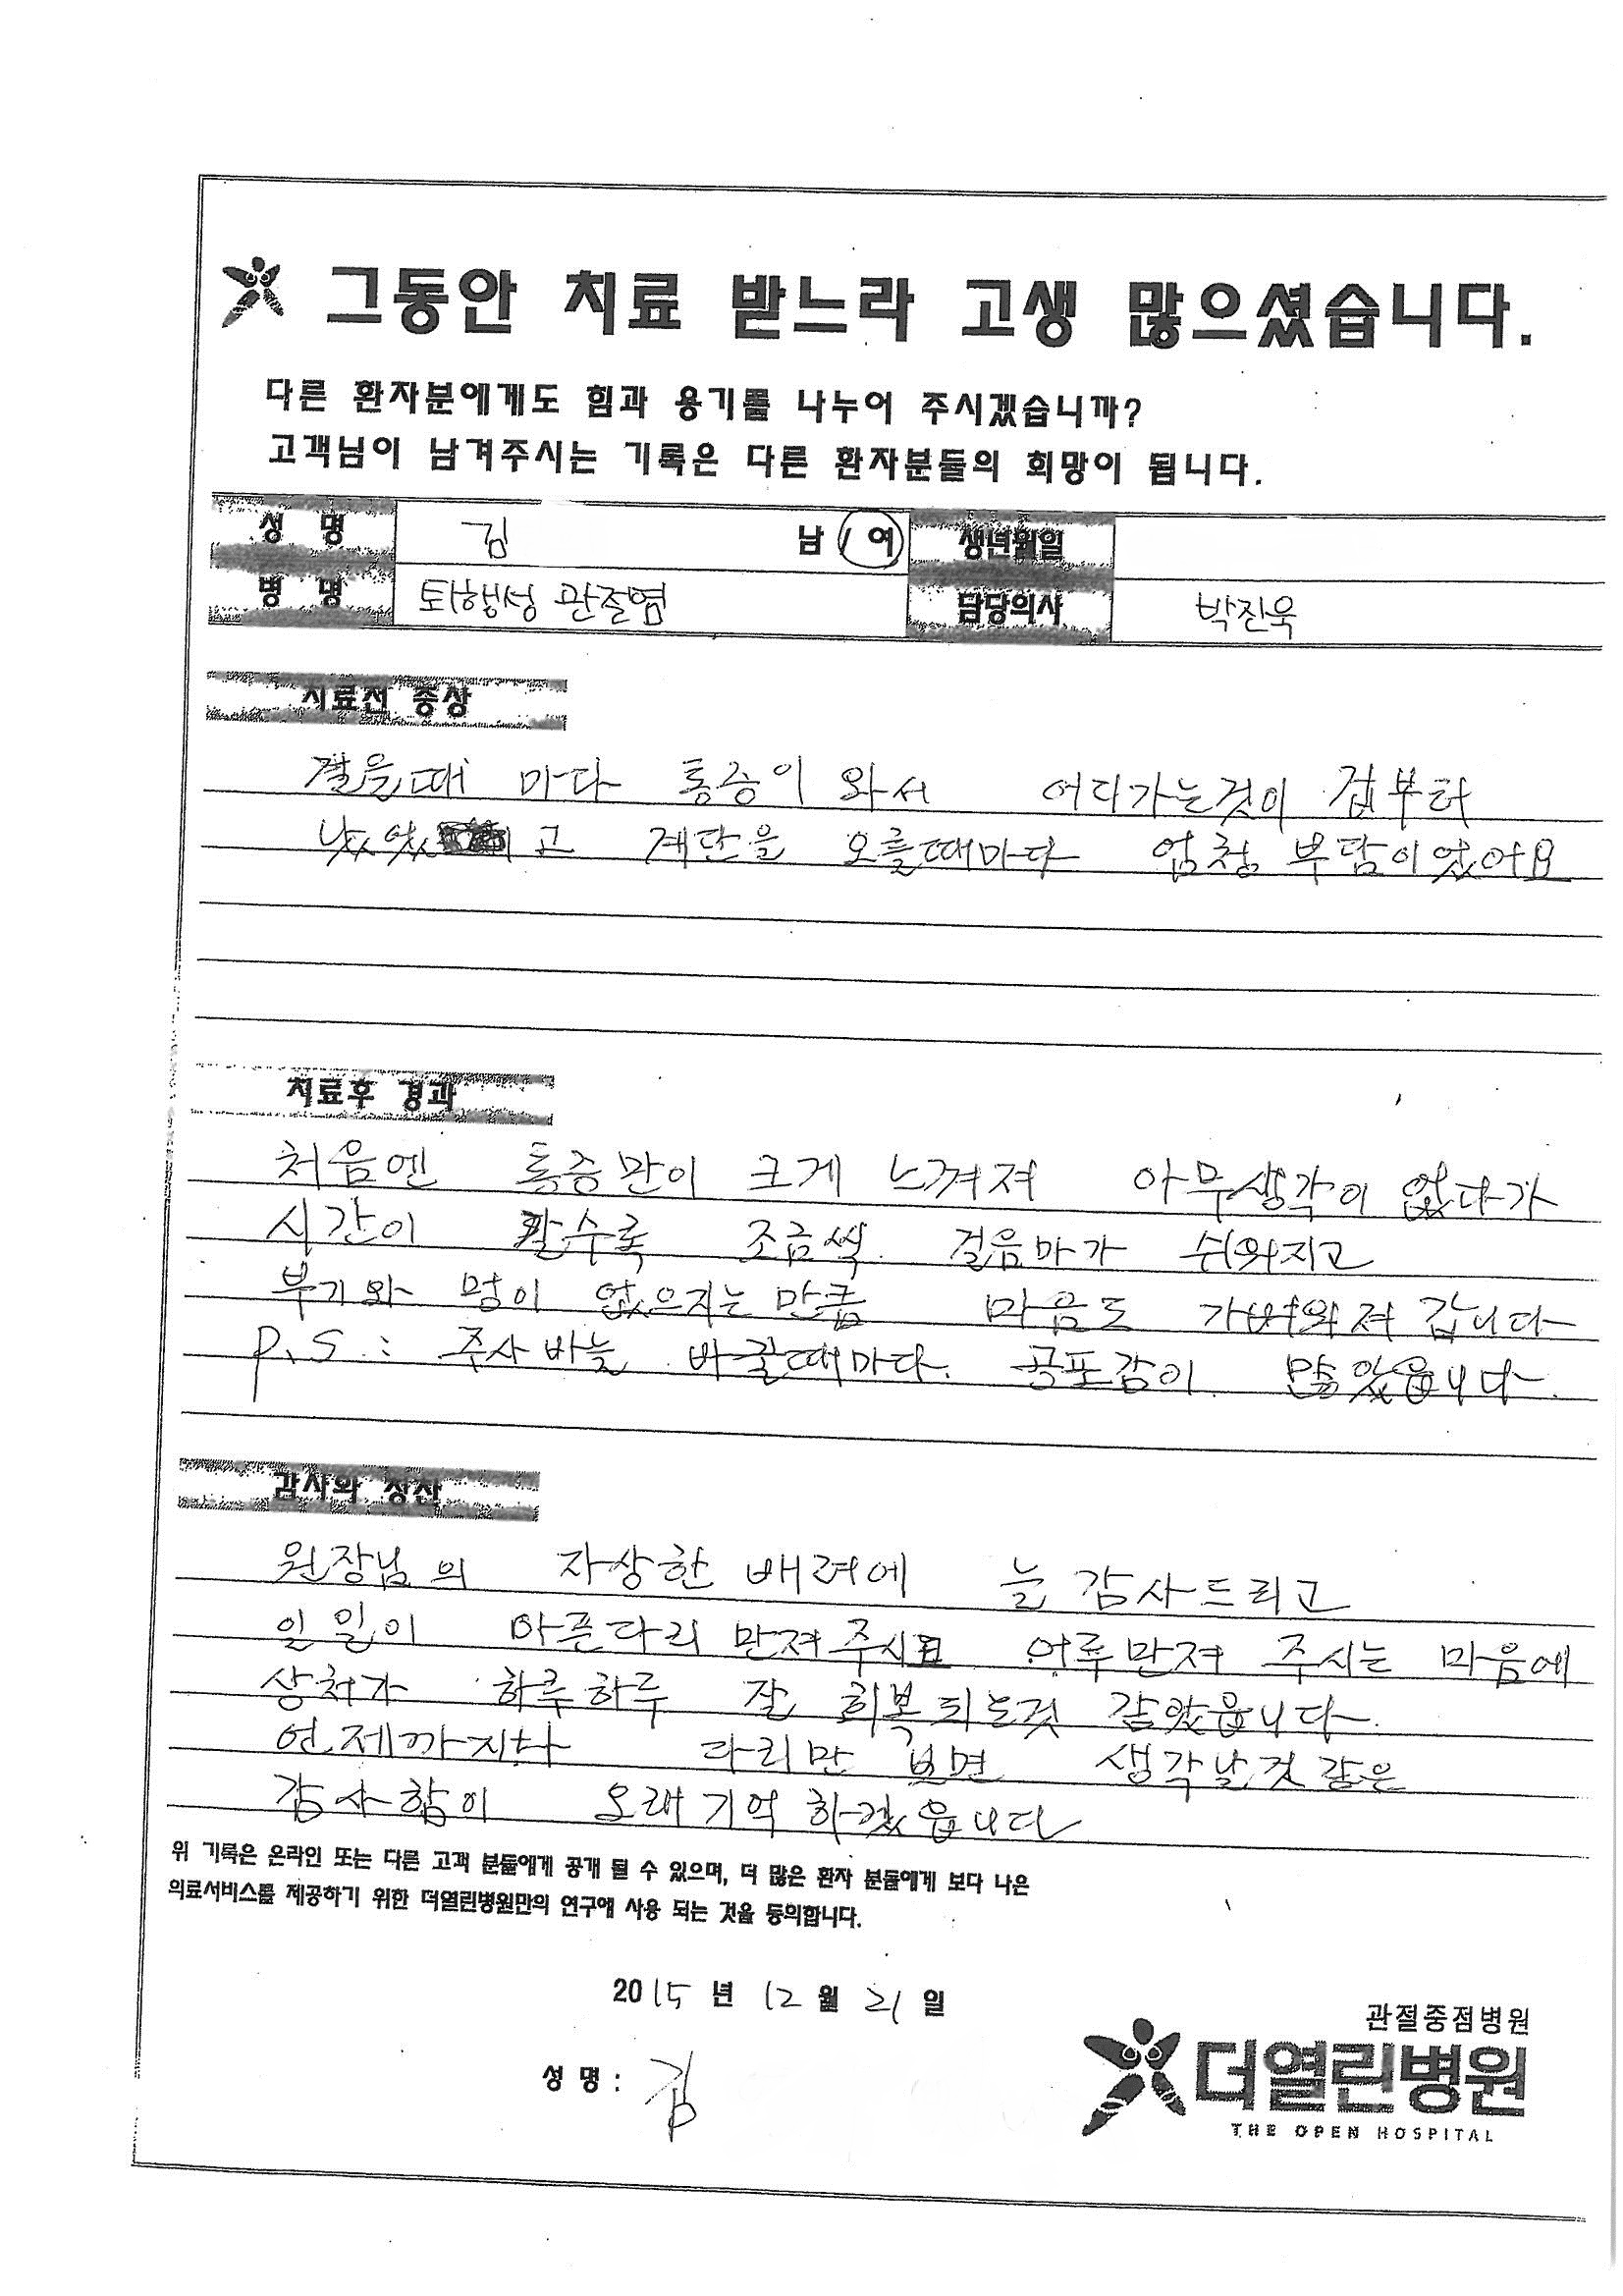 그동안 치료 받느라 고생 많으셨습니다.
다른 환자분에게도 힘과 용기를 나누어 주시겠습니까?
고객님이 남겨주시는 기록은 다른 환자분들의 희망이 됩니다.
성 명 김 남 / 여 생년월일
병 명 퇴행성 관절염 담당의사 박진욱
치료전 증상
걸을때 마다 통증이 와서 어디가는것이 겁부터
났었고 계단을 오를때마다 엄청 부담이었어요
치료후 경과
처음엔 통증만이 크게 느껴져 아무생각이 없다가
시간이 갈수록 조금씩 걸음마가 쉬워지고
부기와 멍이 없으지는 만큼 마음도 가벼워져 갑니다
P.S : 주사바늘 바꿀때마다. 공포감이 많았읍니다.
감사와 칭찬
원장님의 자상한 배려에 늘 감사드리고
일일이 아픈다리 만져주시고 어루만져 주시는 마음에
상처가 하루하루 잘 회복되는것 같았읍니다.
언제까지나 다리만 보면 생각날것 같은
감사함이 오래기억하겠읍니다
위 기록은 온라인 또는 다른 고객 분들에게 공개 될 수 있으며, 더 많은 환자 분들에게 보다 나은
의료서비스를 제공하기 위한 더열린병원만의 연구에 사용 되는 것을 동의합니다.
2015 년 12 월 21 일
관절중점병원
성 명 : 김
더열린병원
THE OPEN HOSPITAL